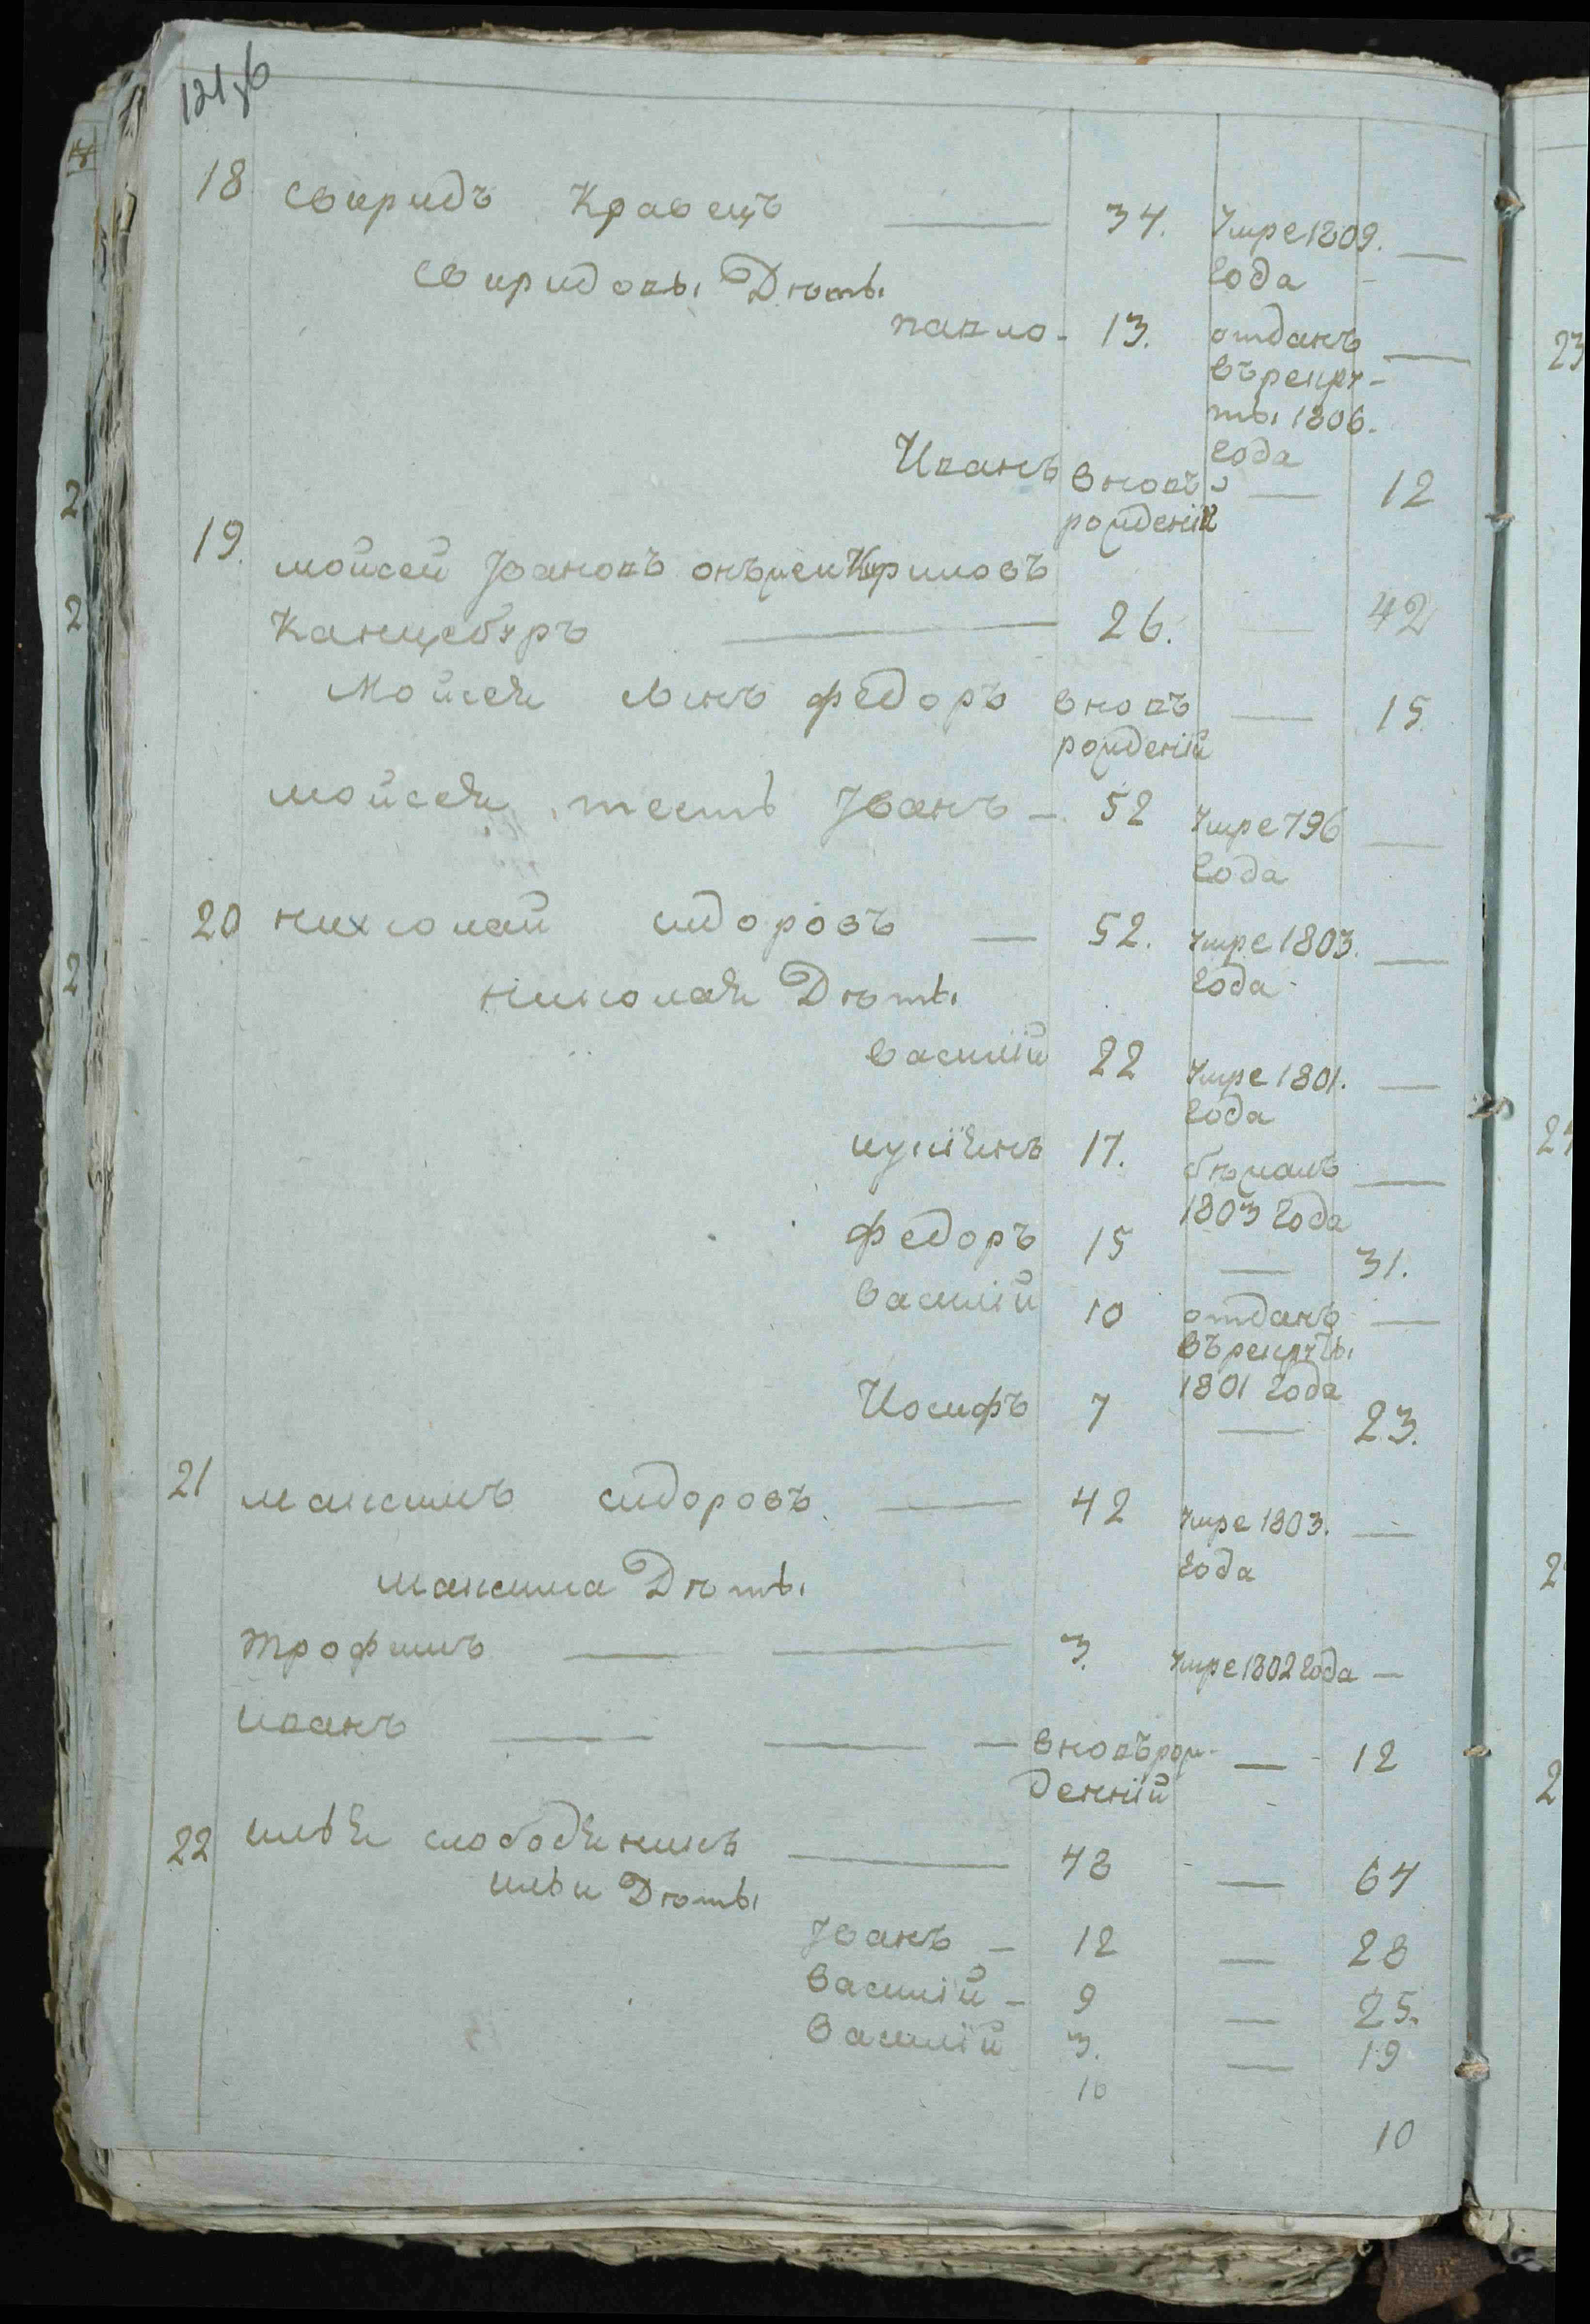 18 Свиридъ Кравецъ — 34. Умре 1809. —
года
Свиридовы Дѣты
павло - 13. отданъ —
въ рекру-
ты 1806.
года
Иванъ вновъ — 12
рожденій
19. мойсей Івановъ онъжеи Кириловъ
Канцебуръ — 26. — 42
Мойсея сынъ федоръ вновъ — 15
рожденій
мойсея тесть Іванъ — 52 Умре 796 —
года
20 николай сидоровъ — 52. умре 1803. —
года
николая Дѣты
василій 22 Умре 1801. —
года
иуліянъ 17. бѣжалъ —
1803 года
федоръ 15 — 31.
василій 10 отданъ —
въ рекруты
1801 года
Иосифъ 7 — 23.
21 максимъ сидоровъ. — 42 умре 1803. —
года
максима Дѣты
трофимъ — — 3. Умре 1802 года —
иванъ — — — вновъ рож- — 12
денній
22 илья слободяникъ — 48 — 64
ильи Дѣты
Іванъ — 12 — 28
василій — 9 — 25.
василій 3. — 19
10
10